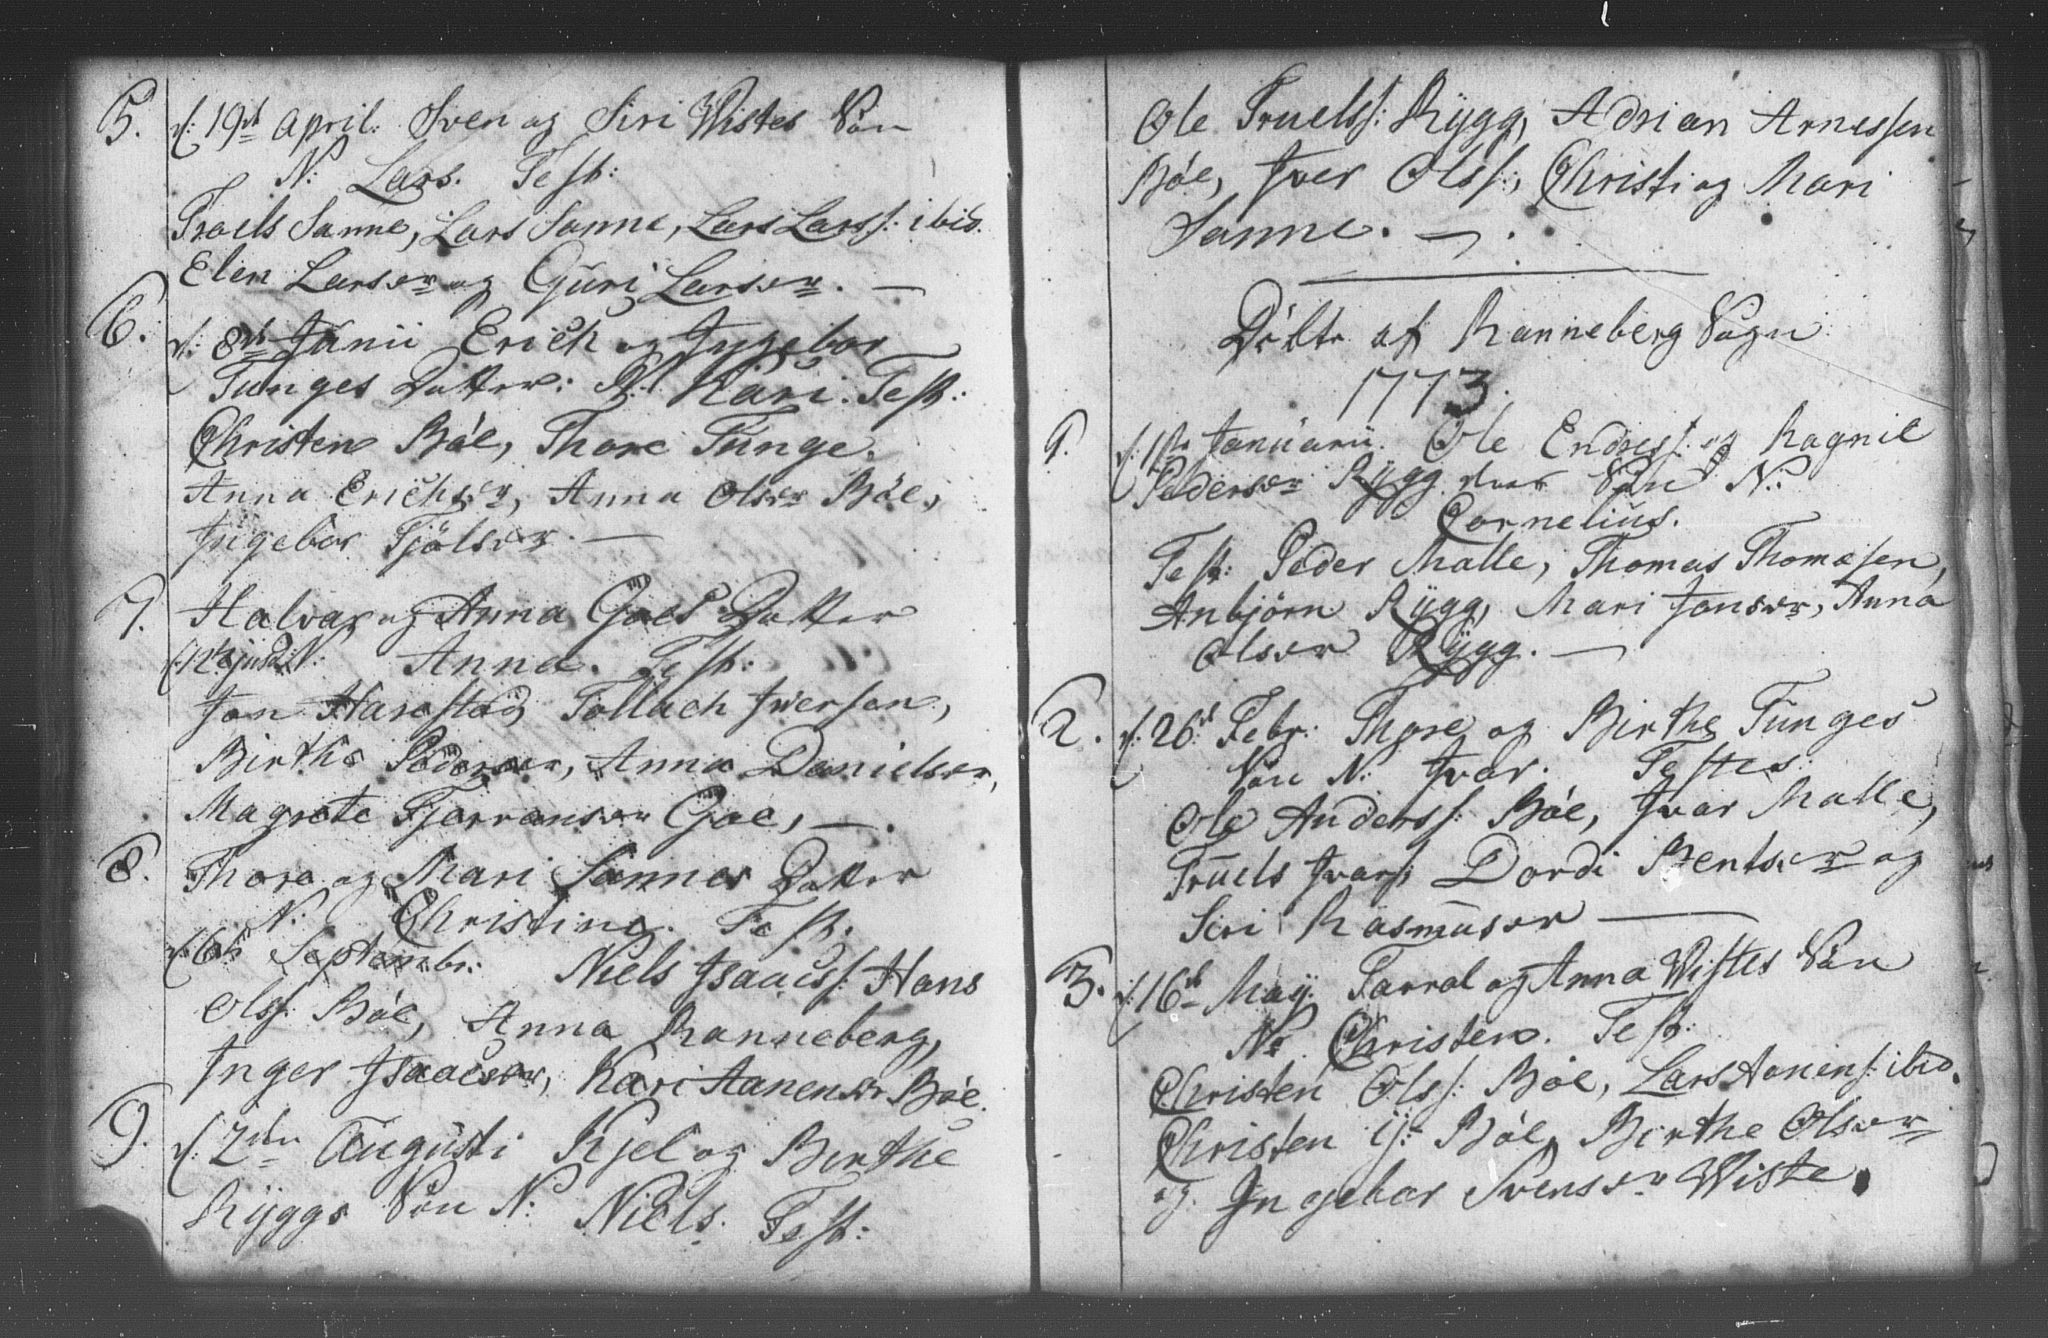 5. d: 19de April: Sven og Siri Wistes Søn
N: Lars. Test:
Troels Sanne, Lars Sanne, Lars Larss: ibid.
Elen Larsdr og Guri Larsdr. —
6. d: 8de Junii Erich og Jngebor
Tunges Datter: N: Kari. Test:
Christen Bøe, Thore Tunge.
Anna Erichsdr, Anna Olsdr Bøe,
Jngebor Tjølsdr. —
7. Halvar og Anna Goes Datter
d: 12te N: Anna. Test:
Jon Harestad, Tollach Jversøn,
Birthe Pedersdr, Anna Danielsdr,
Magrete Tjerransdr Goe, —.
8. Thore og Mari Sannes Datter
N: Christine. Test.
d: 6te Septembr: Niels Jsaacs: Hans
Ols: Bøe, Anna Ranneberg,
Jnger Jsaacsdr, Kari Aanensdr Bøe.
9. d: 2den Augusti Kjel og Birthe
Rygges Søn N: Niels. Test:
Ole Truelss: Rygg, Adrian Arnessen
Bøe, Jver Olss:, Christi og Mari
Sanne. —.
Døbte af Ranneberg Sogn
1773.
1. d: 1ste Januarii. Ole Endress: og Ragnil
Pedersdr Rygg deres Søn N:
Cornelius.
Test: Peder Malle, Thomas Thomæsen,
Anbjørn Rygg, Mari Jonsdr, Anna
Olsdr Rygg. —
2. d: 26de Febr: Thore og Birthe Tunges
Søn N: Jvar. Testes:
Ole Anderss: Bøe, Jvar Malle,
Truels Jvars: Dordi Bentsdr og
Siri Rasmusdr —
3. d: 16de Maÿ. Tarral og Anna Wistes Søn
N: Christen. Test:
Christen Olss: Bøe, Lars Aanens: ibid.
Christen ij: Bøe, Birthe Olsdr
og Jngebor Svensdr Wiste.